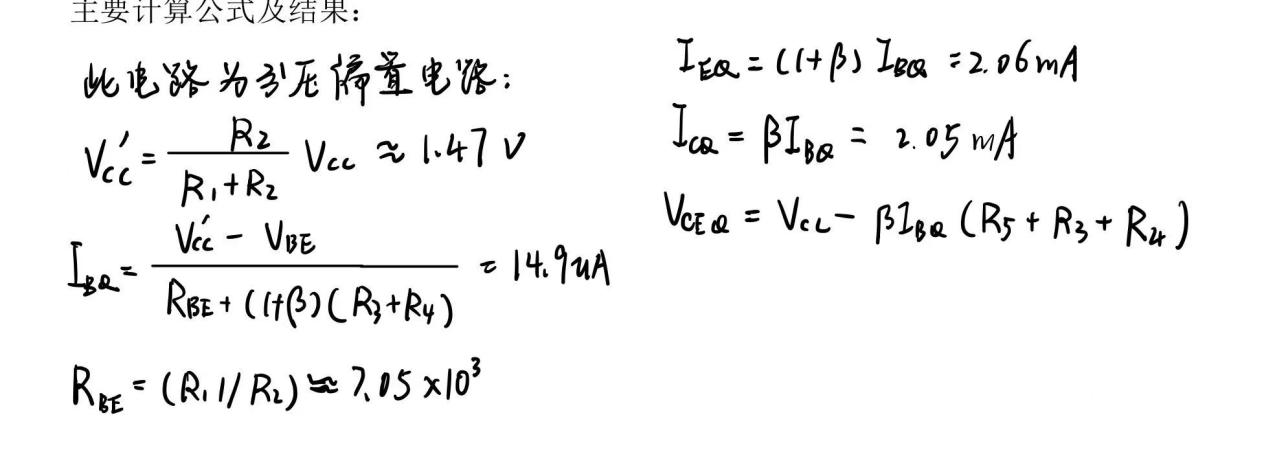 主要计算公式及结果：
此电路为引压偏置电路：
V'cc = R2 / (R1+R2) Vcc ≈ 1.47 V
I_BQ = (V'cc − V_BE) / (R_BE + (1+β)(R3+R4)) = 14.9uA
R_BE = (R1//R2) ≈ 7.05×10³
I_EQ = (1+β) I_BQ = 2.06mA
I_CQ = βI_BQ = 2.05mA
V_CEQ = V_CC − βI_BQ (R5+R3+R4)